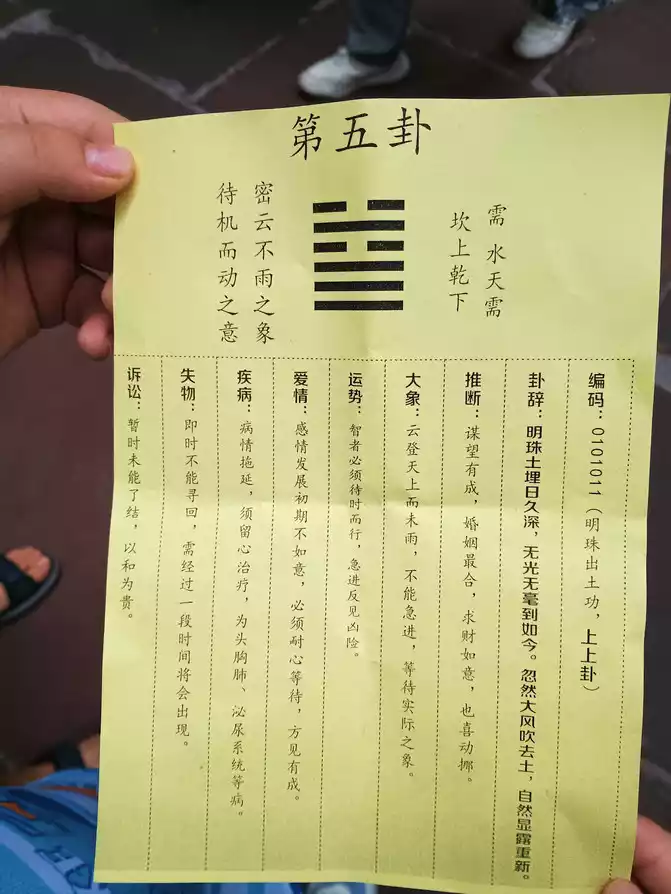 第五卦
需 水天需
坎上乾下
密云不雨之象
待机而动之意
编码：0101011（明珠出土功，上上卦）
卦辞：明珠土埋日久深，无光无毫到如今。忽然大风吹去土，自然显露重新。
推断：谋望有成，婚姻最合，求财如意，也喜动挪。
大象：云登天上而未雨，不能急进，等待实际之象。
运势：智者必须待时而行，急进反见凶险。
爱情：感情发展初期不如意，必须耐心等待，方见有成。
疾病：病情拖延，须留心治疗，为头胸肺、泌尿系统等病。
失物：即时不能寻回，需经过一段时间将会出现。
诉讼：暂时未能了结，以和为贵。